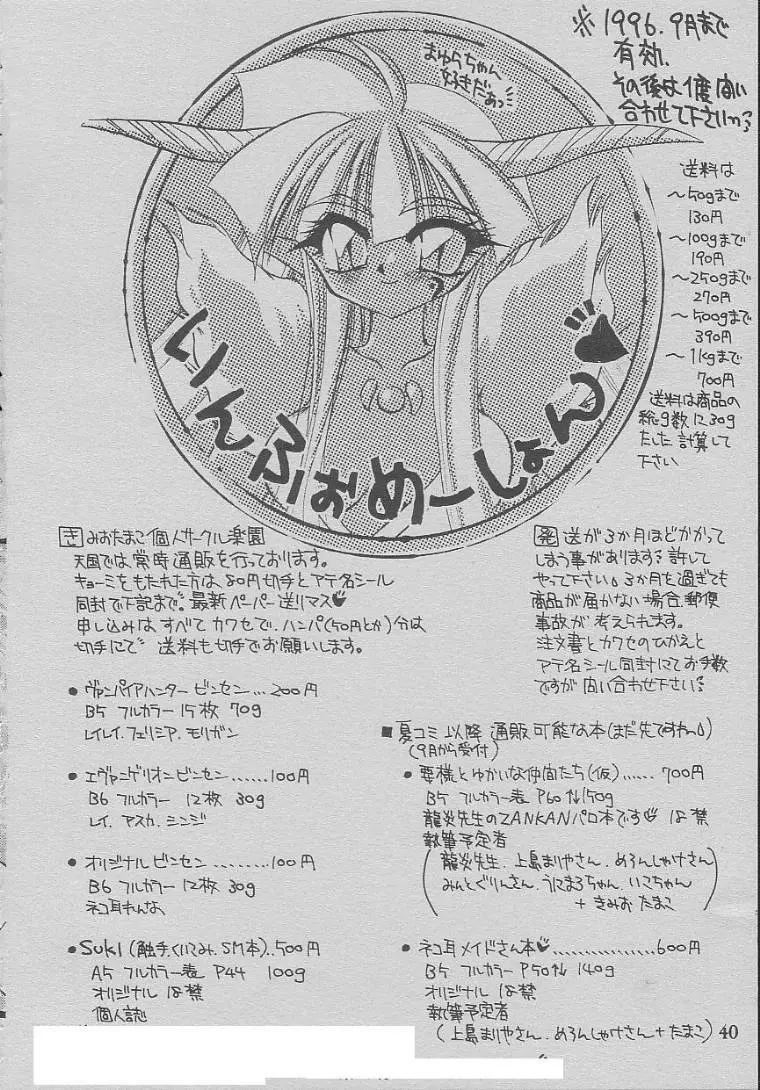 ※1996.9月まで
有効.
その後は1度問い
合わせて下さいっ
まゆらちゃん
好きだあっ
送料は
～50gまで
130円
～100gまで
190円
～250gまで
270円
～500gまで
390円
～1kgまで
700円
送料は商品の
総g数に30g
たした計算して
下さい
いんふぉめーしょん♥
きみおたまこ個人サークル楽園
天国では常時通販を行っております。
キョーミをもたれた方は80円切手とアテ名シール
同封で下記まで最新ペーパー送りマス♥
申し込みは、すべてカワセで.ハンパ(50円とか)分は
切手にて 送料も切手でお願いします。
発送が3か月ほどかかって
しまう事があります 許して
やって下さい 3か月を過ぎても
商品が届かない場合、郵便
事故が考えられます。
注文書とカワセのひかえと
アテ名シール同封にてお手数
ですが問い合わせ下さい
● ヴァンパイアハンター ビンセン...200円
B5 フルカラー 15枚 70g
レイレイ.フェリシア.モリガン
● エヴァンゲリオンビンセン......100円
B6 フルカラー 12枚 30g
レイ.アスカ.シンジ
● オリジナルビンセン........100円
B6 フルカラー 12枚 30g
ネコ耳
● Suki(触手. SM本)..500円
A5 フルカラー表 P44 100g
オリジナル 18禁
個人誌
■ 夏コミ以降 通販可能な本(まだ先ですわっ)
(9月から受付)
● 要様とゆかいな仲間たち(仮)...... 700円
B5 フルカラー表 P60↑↓150g
龍炎先生のZANKANパロ本です♡ 18禁
執筆予定者
(龍炎先生.上島まりやさん.めろんしゃけさん
みんとぐりんさん.うにまろちゃん.いこちゃん
+きみおたまこ)
● ネコ耳メイドさん本♥.................600円
B5 フルカラー P50↑↓ 140g
オリジナル 18禁
執筆予定者
(上島まりやさん.めろんしゃけさん+たまこ)
40